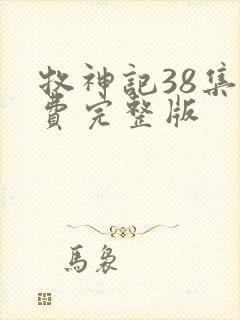 牧神記38集
費完整版
馬裊